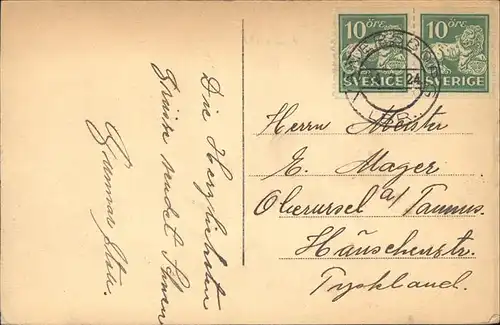 Die Herzlichsten
Grüsse sendet Ihnen
Gunnar
10 ÖRE 10 ÖRE
SVERIGE SVERIGE
24
Herrn Meister
E. Mager
Oberursel a/ Taunus.
Häuschenstr.
Tyskland.